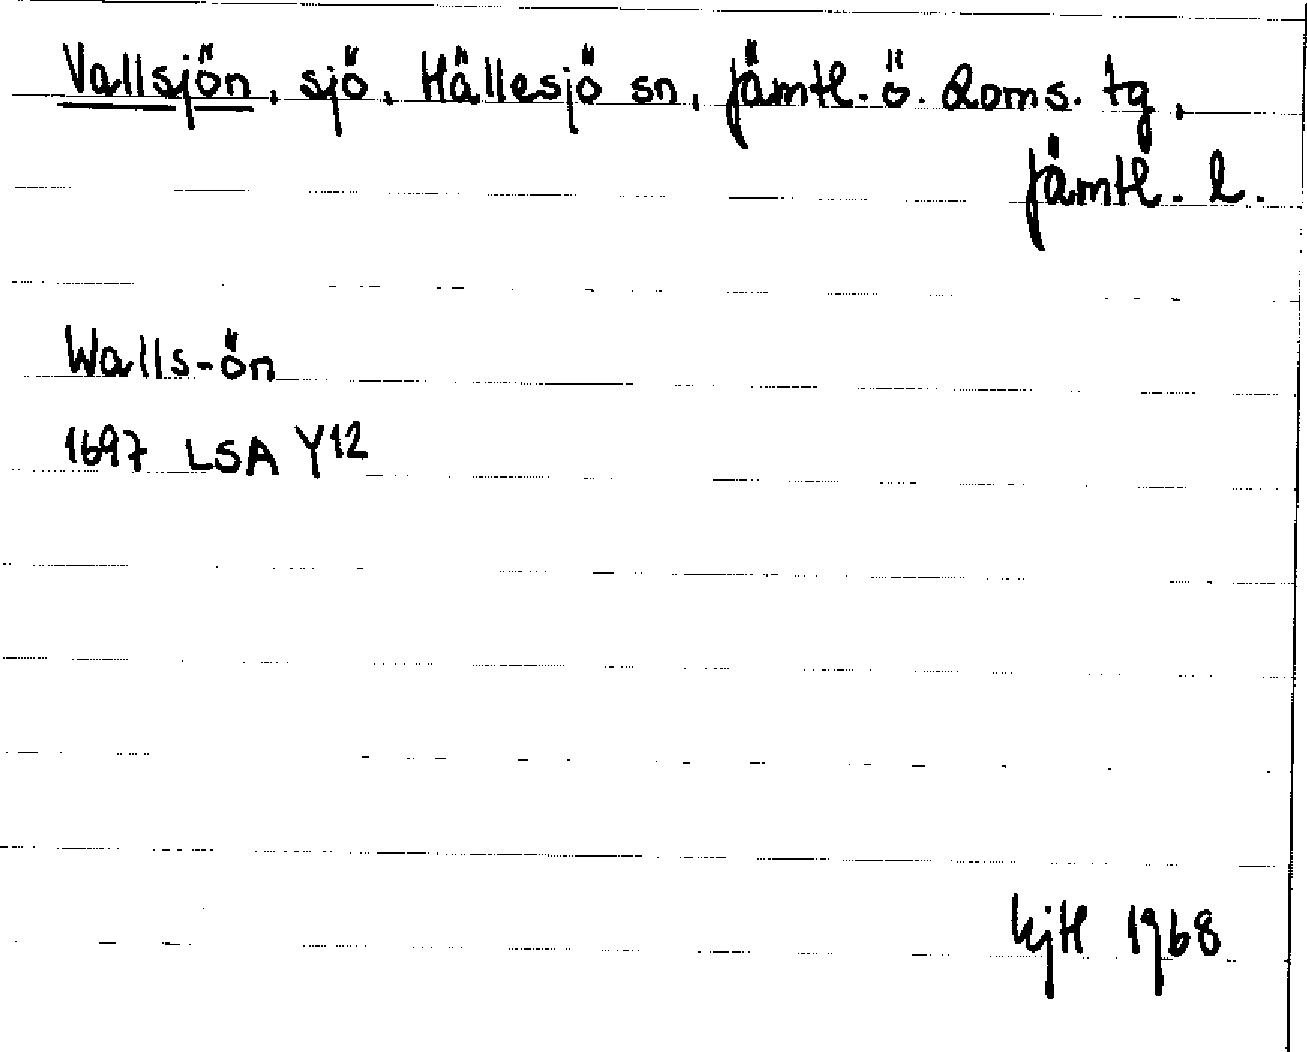 Vallsjön, sjö, Hällesjö sn, Jämtl. ö. doms. tg,
Jämtl. l.
Walls-ön
1697 LSA Y12
KjH 1968